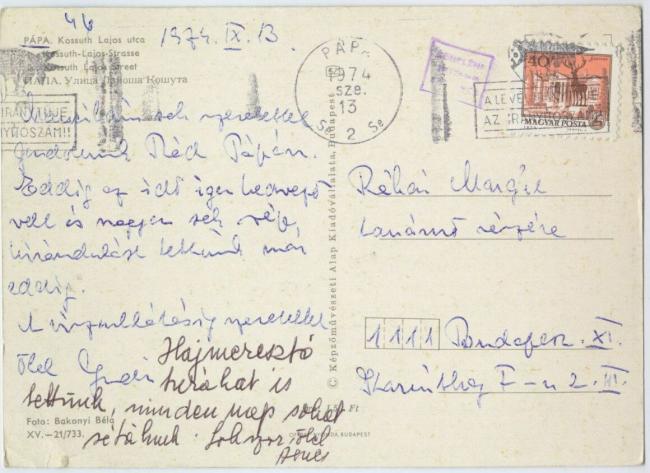 46
PÁPA. Kossuth Lajos utca
Kossuth-Lajos-Strasse
Kossuth Lajos Street
ПАПА. Улица Лайоша Кошута
1974. IX. 13
PÁPA
1974
SZE.
13
2
A LEVÉL
AZ IRÁ
40f
MAGYAR POSTA
IRÁNYÍTÓ
szeretettel
gondolunk Rád Pápán.
Eddig az idő igen kedvező
volt és nagyon sok szép
kirándulást tettünk már
eddig.
A viszontlátásig szeretettel
ölel
Hajmeresztő
túrákat is
tettünk, minden nap sokat
sétálunk. Sokszor ölel
Ágnes
Margit
tanárnő részére
1111 Budapest. XI.
F. u 2. III.
© Képzőművészeti Alap Kiadóvállalata, Budapest
Foto: Bakonyi Béla
XV.—21/733.
Ft